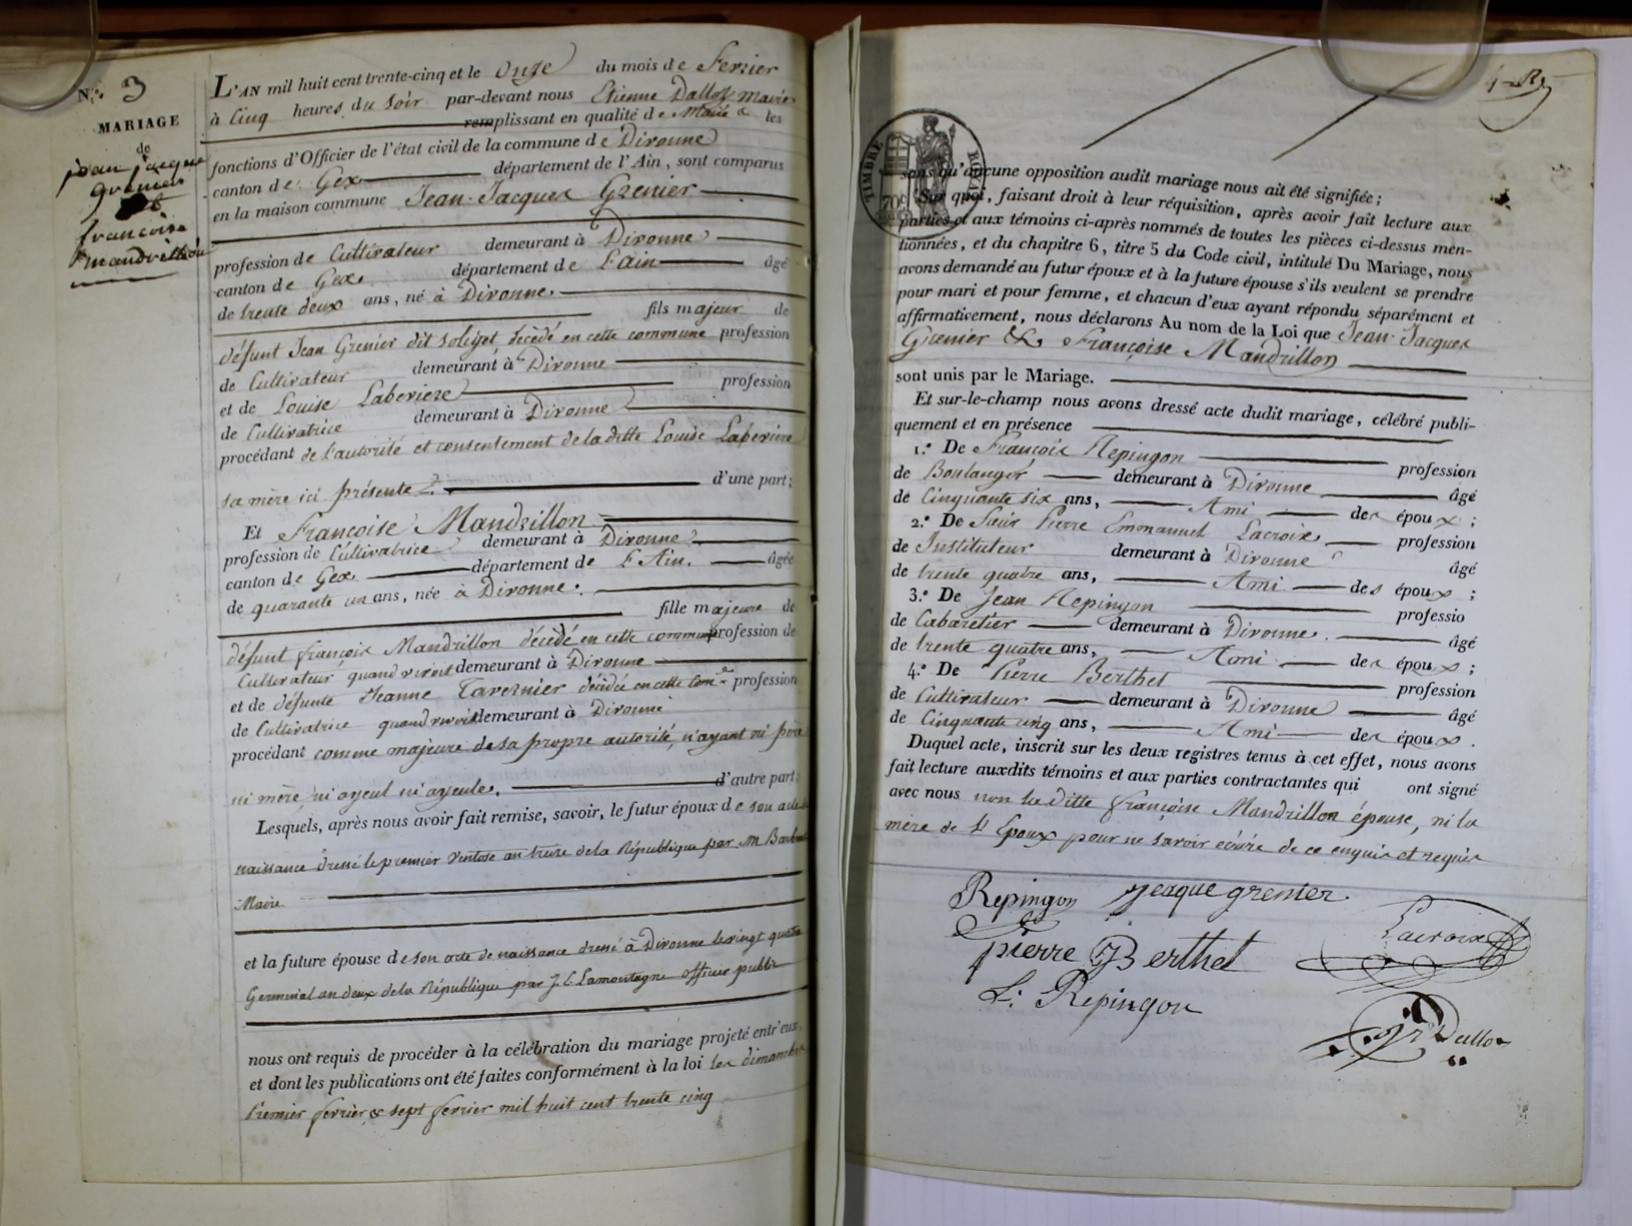 N.° 3
MARIAGE
de
jean jacque
grenier
&
francoise
mandrillon
L'AN mil huit cent trente-cinq et le Onze du mois de Fevrier
à Cinq heures du Soir par-devant nous Etienne Dalloz Maire
remplissant en qualité de Maire les
fonctions d'Officier de l'état civil de la commune de Divonne
canton de Gex département de l'Ain, sont comparus
en la maison commune Jean-Jacques Grenier
profession de Cultivateur demeurant à Divonne
canton de Gex département de L'ain âgé
de trente deux ans, né à Divonne.
fils majeur de
défunt Jean Grenier dit décédé en cette commune profession
de Cultivateur demeurant à Divonne
et de Louise Laberiere profession
de Cultivatrice demeurant à Divonne
procédant de l'autorité et consentement de la ditte Louise Laberiere
sa mère ici présente d'une part;
Et Françoise Mandrillon
profession de Cultivatrice demeurant à Divonne
canton de Gex département de L'Ain. âgée
de quarante un ans, née à Divonne.
fille majeure de
défunt françois Mandrillon décédé en cette commune profession de
Cultivateur quand vivoit demeurant à Divonne
et de défunte Jeanne Tavernier décédée en cette Com.ne profession
de Cultivatrice quand vivoit demeurant à Divonne
procédant comme majeure de sa propre autorité, n'ayant ni père
ni mère, ni ayeul ni ayeule. d'autre part;
Lesquels, après nous avoir fait remise, savoir, le futur époux de son acte de
naissance dressé le premier Ventose an treize de la République par M
Maire
et la future épouse de son acte de naissance dressé à Divonne le vingt quatre
Germinal an deux de la République par J. C. Lamontagne officier public
nous ont requis de procéder à la célébration du mariage projeté entr'eux,
et dont les publications ont été faites conformément à la loi les dimanches
Premier fevrier & sept fevrier mil huit cent trente cinq
TIMBRE ROYAL
70c
sans qu'aucune opposition audit mariage nous ait été signifiée;
Sur quoi, faisant droit à leur réquisition, après avoir fait lecture aux
parties et aux témoins ci-après nommés de toutes les pièces ci-dessus men-
tionnées, et du chapitre 6, titre 5 du Code civil, intitulé Du Mariage, nous
avons demandé au futur époux et à la future épouse s'ils veulent se prendre
pour mari et pour femme, et chacun d'eux ayant répondu séparément et
affirmativement, nous déclarons Au nom de la Loi que Jean-Jacques
Grenier & Françoise Mandrillon
sont unis par le Mariage.
Et sur-le-champ nous avons dressé acte dudit mariage, célébré publi-
quement et en présence
1.° De François Repingon profession
de Boulanger demeurant à Divonne âgé
de Cinquante six ans, Ami des époux;
2.° De Sieur Pierre Emmanuel Lacroix profession
de Instituteur demeurant à Divonne âgé
de trente quatre ans, Ami des époux;
3.° De Jean Repingon professio
de Cabaretier demeurant à Divonne. âgé
de trente quatre ans, Ami des époux;
4.° De Pierre Berthet profession
de Cultivateur demeurant à Divonne âgé
de Cinquante cinq ans, Ami des époux.
Duquel acte, inscrit sur les deux registres tenus à cet effet, nous avons
fait lecture auxdits témoins et aux parties contractantes qui ont signé
avec nous non la ditte françoise Mandrillon épouse, ni la
mère de l'Epoux pour ne savoir ecrire de ce enquis et requis
Repingon jeaque grenier
Lacroix
pierre Berthet
Repingon
Dalloz